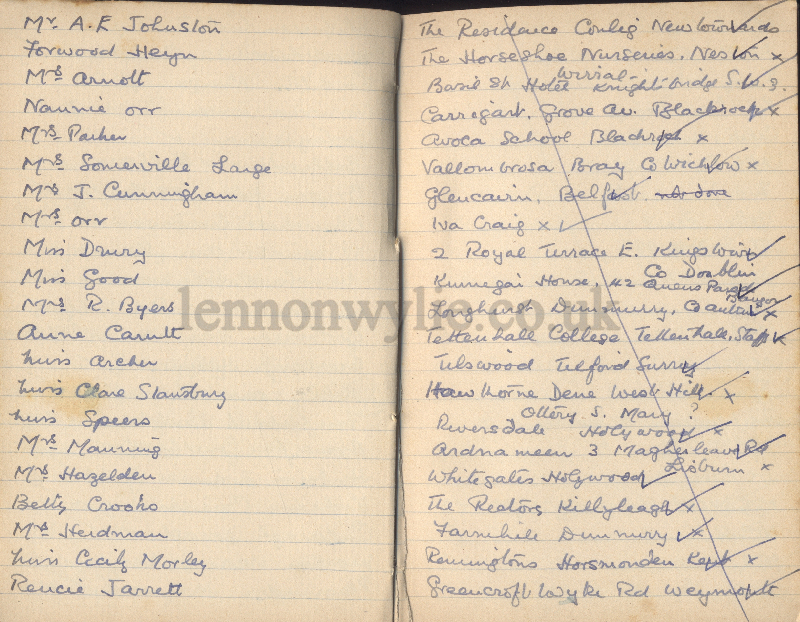 Mr. A. E Johnston
Forwood Heyn
Mrs Arnott
Nannie Orr
Mrs Parker
Mrs Somerville Large
Mrs J. Cunningham
Mrs Orr
Miss Drury
Miss Good
Mrs R. Byers
Anne
Miss Archer
Miss Clare Stansbury
Miss Speers
Mrs Manning
Mrs Hazelden
Betty Crooks
Mrs Herdman
Miss Cecily Morley
Rencie Jarrett
The Residence Conlig Newtownards
The Horseshoe Nurseries, Neston x
Wirral
Basil St Hotel Knightsbridge S.W.3.
Carrigart, Grove Av. Blackrock x
Avoca School Blackrock x
Vallombrosa Bray Co Wicklow x
Glencairn, Belfast.
Iva Craig x
2 Royal Terrace E. Kingstown
Co Doublin
House, 42 Queens Parade
Bangor
Longhurst Dunmurry, Co Antrim x
Tettenhall College Tettenhall, Staffs x
Tilford Surrey
Hawthorne Dene West Hill. x
Ottery S. Mary ?
Riversdale Holywood x
Ardnameen 3 Magheralave Rd
Lisburn x
Whitegates Holywood
The Rectory Killyleagh x
Farmhill Dunmurry x
Remingtons Horsmonden Kent x
Greencroft Wyke Rd Weymouth
lennonwylie.co.uk